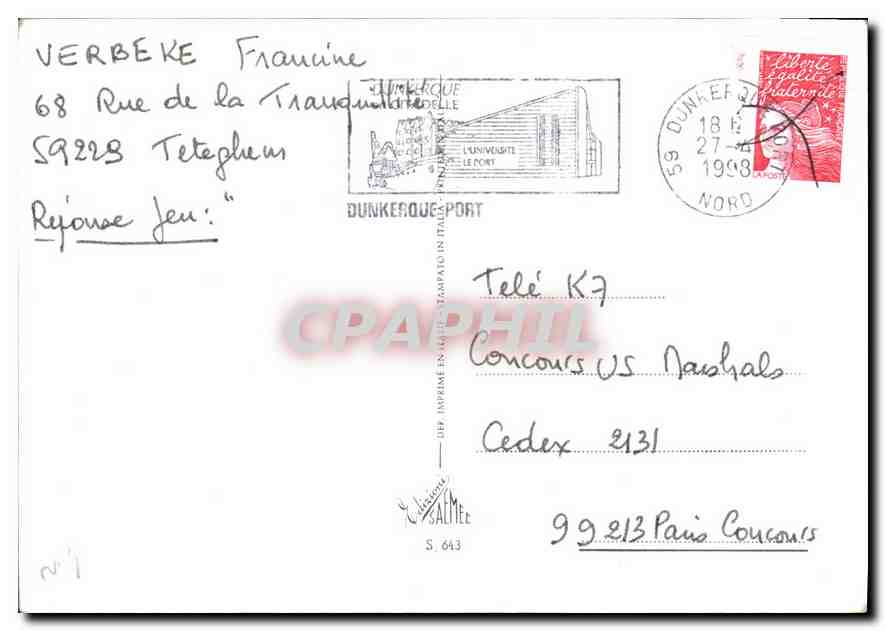 VERBEKE Francine
68 Rue de la Tranquillité
59229 Teteghem
Réponse Jeu : "
DUNKERQUE
CITADELLE
L'UNIVERSITE
LE PORT
DUNKERQUE-PORT
59 DUNKERQUE
18 H
27 -
1998
NORD
liberté
égalité
fraternité
LA POSTE
Télé K7
Concours US Marshals
Cedex 2131
99213 Paris Concours
CPAPHIL
DEP. IMPRIMÉ EN ITALIE - STAMPATO IN ITALIA - PRINTED IN ITALY
Edizioni
SAEMEC
S. 643
N° 1